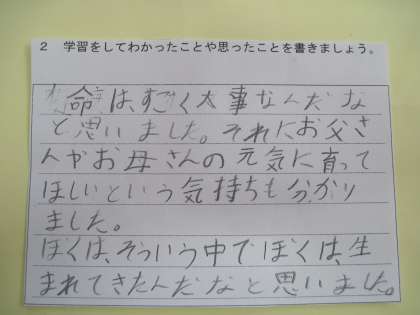 2 学習をしてわかったことや思ったことを書きましょう。
命は、すごく大事なんだな
と思いました。それにお父さ
んやお母さんの元気に育って
ほしいという気持ちも分かり
ました。
ぼくは、そういう中でぼくは、生
まれてきたんだなと思いました。